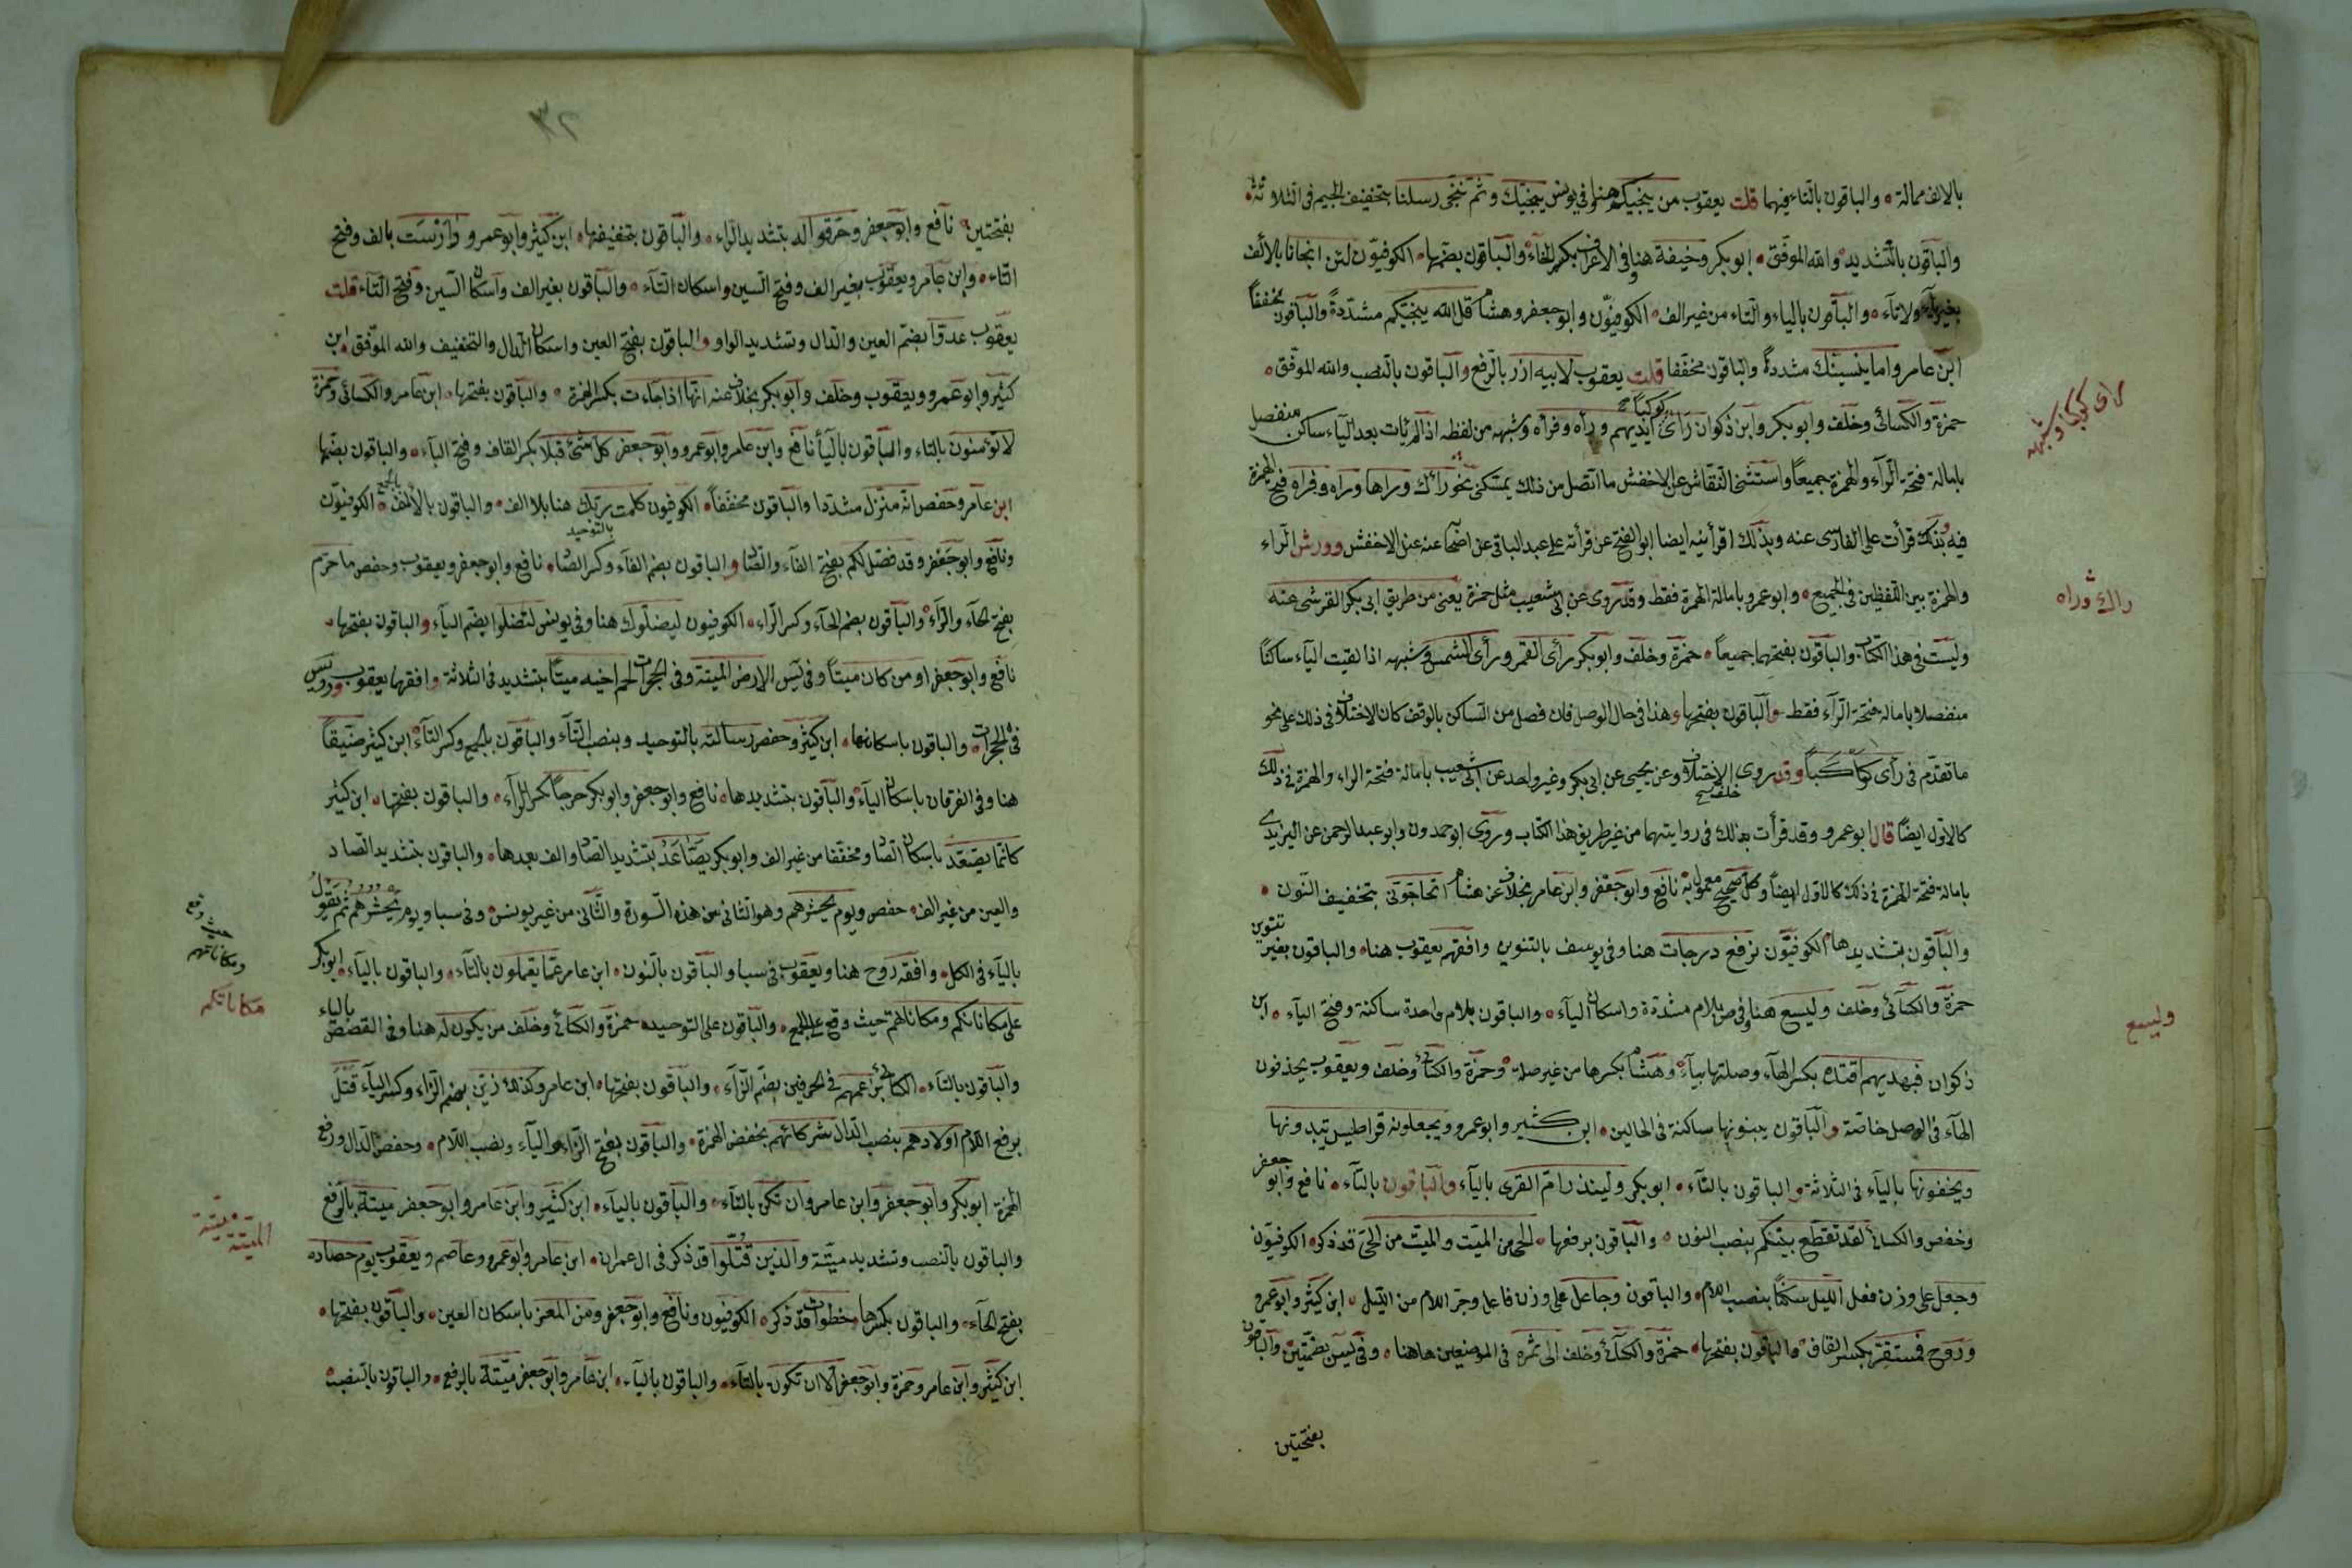 بالالف ممالة والباقون بالتاء فيهما قلت يعقوب من ينجيكم هنا وفي يونس ينجيك وثم ننجى رسلنا بتخفيف الجيم في الثلاثة
والباقون بالتشديد والله الموفق ابو بكر وخيفة هنا وفي الاعراف بكسر الخاء والباقون بضمها الكوفيون لئن انجانا بالالف
بغير ياء ولا تاء والباقون بالياء والتاء من غير الف الكوفيون وابو جعفر وهشام قل الله ينجيكم مشددة والباقون مخففا
ابن عامر واما ينسينك مشددة والباقون مخففا قلت يعقوب لابيه ازر بالرفع والباقون بالنصب والله الموفق
حمزة والكسائي وخلف وابو بكر وابن ذكوان رأى كوكبا أيديهم ورأه وفرأه وشبهه من لفظه اذا لم يأت بعد الياء ساكن منفصل
بامالة فتحة الراء والهمزة جميعا واستثنى النقاش عن الاخفش ما اتصل من ذلك بمكنى نحو رأك وراها وراه وفراه فتح الهمزة
فيه وبذلك قرأت على الفارسى عنه وبذلك اقرأنيه ايضا ابو الفتح عن قرأته على عبد الباقى عن اصحابه عنه عن الاخفش وورش الراء
والهمزة بين اللفظين في الجميع وابو عمرو بامالة الهمزة فقط وقد روى عن ابي شعيب مثل حمزة يعنى من طريق ابى بكر القرشى عنه
وليست في هذا الكتاب والباقون بفتحهما جميعا حمزة وخلف وابو بكر رأى القمر ورأى الشمس وشبهه اذا لقيت الياء ساكنا
منفصلا بامالة فتحة الراء فقط والباقون بفتحها وهذا في حال الوصل فان فصل من الساكن بالوقف كان الاختلاف في ذلك على نحو
ما تقدم في رأى كوكبا وقد روى الاختلاف وعن يحيى عن ابى بكر وغير واحد عن ابى شعيب بامالة فتحة الراء والهمزة في ذلك
كالاول ايضا قال ابو عمرو وقد قرأت بذلك في روايتهما من غير طريق هذا الكتاب وروى ابو حمدون وابو عبد الرحمن عن اليزيدى
بامالة فتحة الهمزة في ذلك كالاول ايضا وكل صحيح معمول به نافع وابو جعفر وابن عامر بخلاف عن هشام اتحاجونى بتخفيف النون
والباقون بتشديدها الكوفيون نرفع درجات هنا وفي يوسف بالتنوين وافقهم يعقوب هنا والباقون بغير تنوين
حمزة والكسائى وخلف وليسع هنا وفي ص بلام مشددة واسكان الياء والباقون بلام واحدة ساكنة وفتح الياء ابن
ذكوان فبهديهم اقتده بكسر الهاء وصلتها بياء وهشام بكسرها من غير صلة وحمزة والكسائى وخلف ويعقوب يحذفون
الهاء في الوصل خاصة والباقون يبتونها ساكنة في الحالين ابن كثير وابو عمرو ويجعلونه قراطيس يبدونها
ويخفونها بالياء في الثلاثة والباقون بالتاء ابو بكر ولينذر ام القرى بالياء والباقون بالتاء نافع وابو جعفر
وحفص والكسائى لقد تقطع بينكم بنصب النون والباقون برفعها الحى من الميت والميت من الحى قد ذكر الكوفيون
وجعل على وزن فعل الليل سكنا بنصب اللام والباقون وجاعل على وزن فاعل وجر اللام من الليل ابن كثير وابو عمرو
وروح فمستقر بكسر القاف والباقون بفتحها حمزة والكسائى وخلف الى ثمره في الموضعين هاهنا وفي يس بضمتين والباقون
بفتحتين
راى كوكبا وشبهه
راك وراه
وليسع
بفتحتين نافع وابو جعفر وخرقوا له بتشديد الراء والباقون بتخفيفها ابن كثير وابو عمرو دارست بالف وفتح
التاء وابن عامر ويعقوب بغير الف وفتح السين واسكان التاء والباقون بغير الف واسكان السين وفتح التاء قلت
يعقوب عدوا بضم العين والدال وتشديد الواو والباقون بفتح العين واسكان الدال والتخفيف والله الموفق ابن
كثير وابو عمرو ويعقوب وخلف وابو بكر بخلاف عنه انها اذا جاءت بكسر الهمزة والباقون بفتحها ابن عامر والكسائى وحمزة
لا تؤمنون بالتاء والباقون بالياء نافع وابن عامر وابو عمرو وابو جعفر كل شئ قبلا بكسر القاف وفتح الباء والباقون بضمها
ابن عامر وحفص انه منزل مشددا والباقون مخففا الكوفيون كلمت ربك هنا بلا الف بالتوحيد والباقون بالالف بالجمع الكوفيون
ونافع وابو جعفر وقد فصل لكم بفتح الفاء والصاد والباقون بضم الفاء وكسر الصاد نافع وابو جعفر ويعقوب وحفص ما حرم
بفتح الحاء والراء والباقون بضم الحاء وكسر الراء الكوفيون ليضلوك هنا وفي يونس لتضلوا بضم الياء والباقون بفتحها
نافع وابو جعفر او من كان ميتا وفي يس الارض الميتة وفي الحجرات لحم اخيه ميتا بتشديد في الثلاثة وافقهما يعقوب ورويس
في الحجرات والباقون باسكانها ابن كثير وحفص رسالته بالتوحيد وبنصب التاء والباقون بالجمع وكسر التاء ابن كثير ضيقا
هنا وفي الفرقان باسكان الياء والباقون بتشديدها نافع وابو جعفر وابو بكر حرجا بكسر الراء والباقون بفتحها ابن كثير
كانما يصعد باسكان الصاد ومخففا من غير الف وابو بكر يصاعد بتشديد الصاد والف بعدها والباقون بتشديد الصاد
والعين من غير الف حفص ويوم يحشرهم وهو الثانى من هذه السورة والثانى من غير يونس وفي سبا ويوم يحشرهم ثم يقول
بالياء في الكل وافقه روح هنا ويعقوب في سبا والباقون بالنون ابن عامر عما يعملون بالتاء والباقون بالياء ابو بكر
على مكاناتكم ومكاناتهم حيث وقع على الجمع والباقون على التوحيد حمزة والكسائى وخلف من يكون له هنا وفي القصص بالياء
والباقون بالتاء الكسائى بزعمهم في الحرفين بضم الزاء والباقون بفتحها ابن عامر وكذلك زين بضم الزاء وكسر الياء قتل
برفع اللام اولادهم بنصب الدال شركائهم بخفض الهمزة والباقون بفتح الزاء والياء ونصب اللام وخفض الدال ورفع
الهمزة ابو بكر وابو جعفر وابن عامر وان تكن بالتاء والباقون بالياء ابن كثير وابن عامر وابو جعفر ميتة بالرفع
والباقون بالنصب وتشديد ميتة والذين قتلوا قد ذكر في ال عمران ابن عامر وابو عمرو وعاصم ويعقوب يوم حصاده
بفتح الحاء والباقون بكسرها خطوات قد ذكر الكوفيون ونافع وابو جعفر ومن المعز باسكان العين والباقون بفتحها
ابن كثير وابن عامر وحمزة وابو جعفر الا ان تكون بالتاء والباقون بالياء ابن عامر وابو جعفر ميتة بالرفع والباقون بالنصب
حيث وقع
ومكاناتهم
مكاناتكم
الميتة ميتة